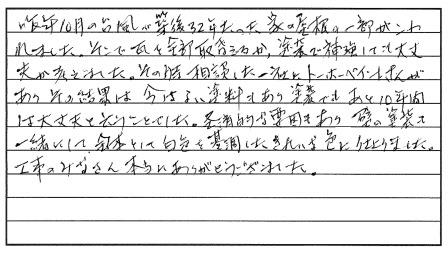 昨年10月の台風で築後32年たった家の屋根の一部がこわ
れました。そこで瓦を全部取替えるか、塗装で補強しても大丈
夫か考えました。その時相談した一社にトーホーペイントさんが
あり その結果は 今は良い塗料もあり 塗装でもあと10年間
は大丈夫と言うことでした。经済的な費用もあり 壁の塗装も
一緒にして 全体として白色を基調にしたきれいな色に仕上りました。
工事のみなさん 本当にありがとうございました。